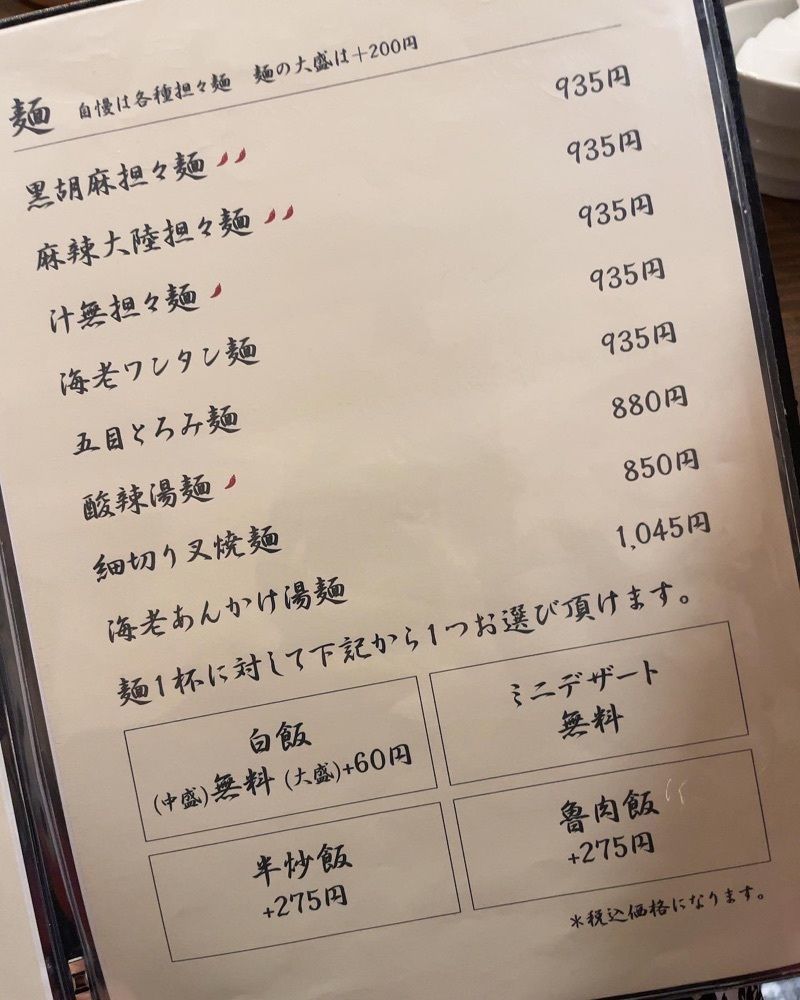 麺 自慢は各種担々麺 麺の大盛は+200円
黒胡麻担々麺 935円
麻辣大陸担々麺 935円
汁無担々麺 935円
海老ワンタン麺 935円
五目とろみ麺 935円
酸辣湯麺 880円
細切り叉焼麺 850円
海老あんかけ湯麺 1,045円
麺1杯に対して下記から1つお選び頂けます。
白飯
(中盛)無料 (大盛)+60円
ミニデザート
無料
半炒飯
+275円
魯肉飯
+275円
*税込価格になります。